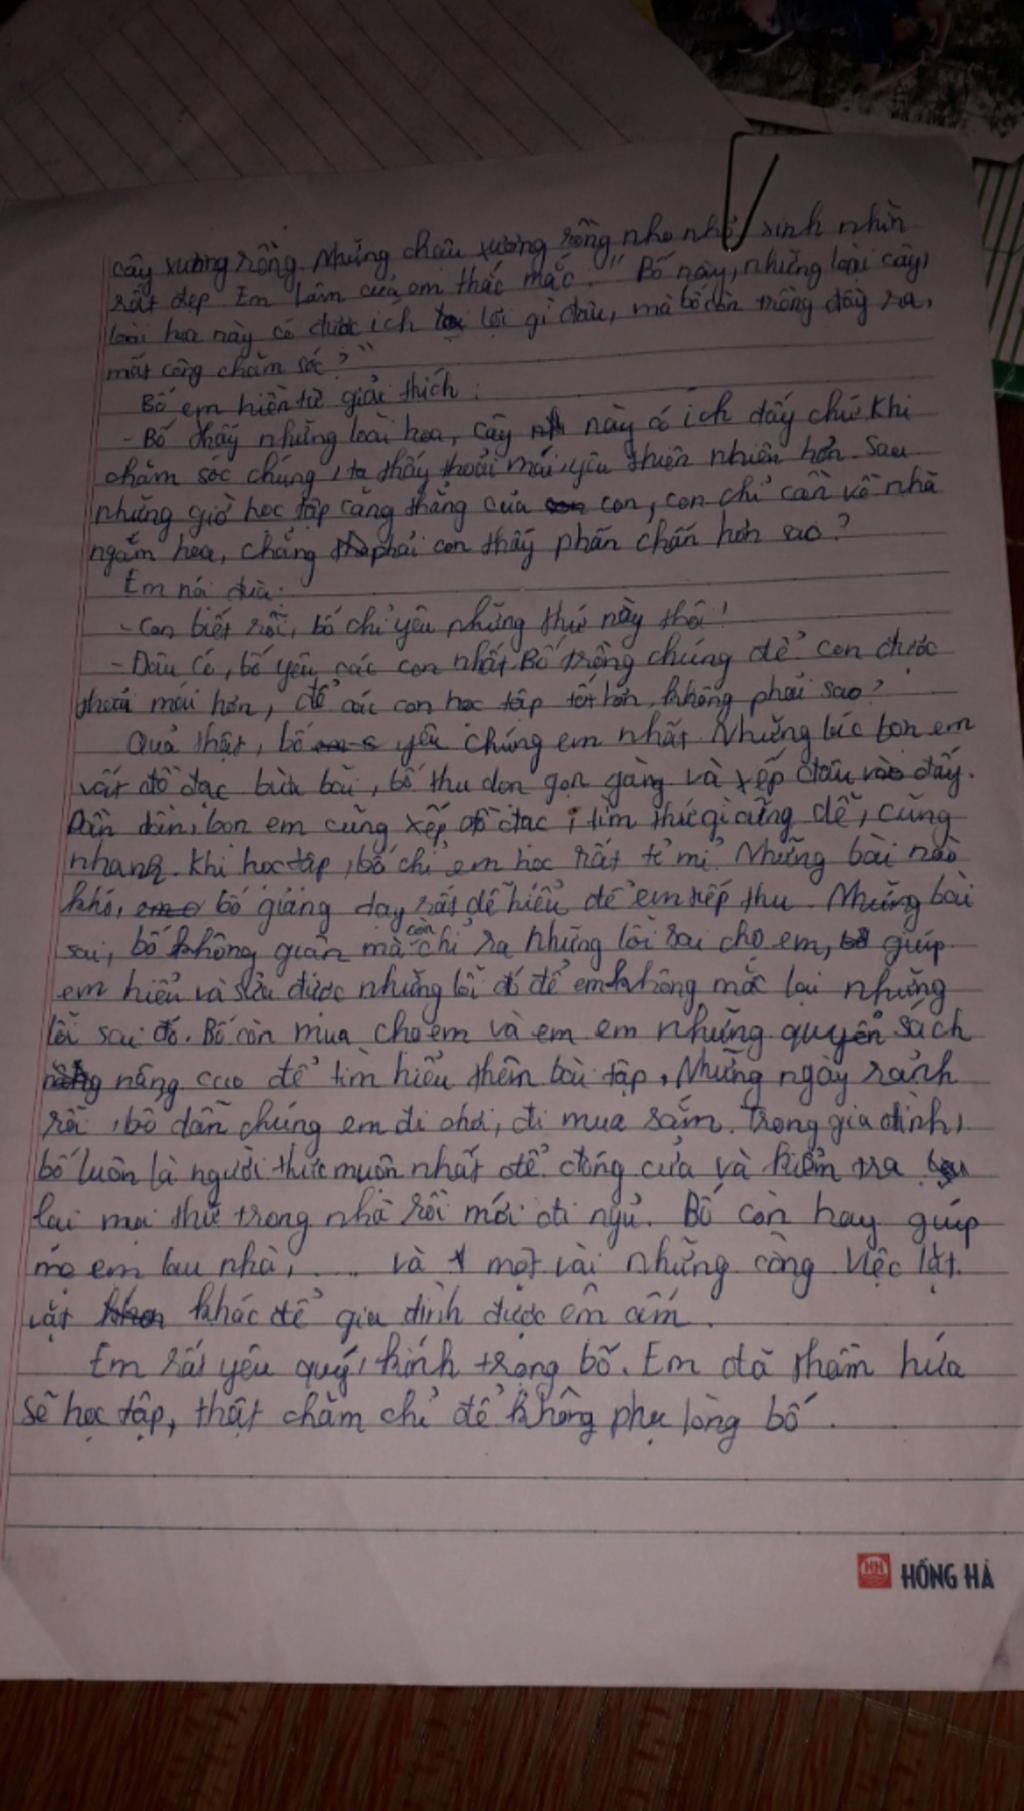 cây xương rồng. Những chậu xương rồng nho nhỏ, xinh nhìn
rất đẹp. Em lắm của em thắc mắc. "Bố này, những loài cây,
loài hoa này có được ích lợi gì đâu, mà bố còn trồng đầy ra,
mất công chăm sóc?"
Bố em hiền từ giải thích:
- Bố thấy những loài hoa, cây này có ích đấy chứ. Khi
chăm sóc chúng, ta thấy thoải mái, yêu thiên nhiên hơn. Sau
những giờ học tập căng thẳng của con, con chỉ cần về nhà
ngắm hoa, chẳng phải con thấy phấn chấn hơn sao?
Em nói đùa:
- Con biết rồi, bố chỉ yêu những thứ này thôi!
- Đâu có, bố yêu các con nhất. Bố trồng chúng để con được
thoải mái hơn, để các con học tập tốt hơn, không phải sao?
Quả thật, bố yêu chúng em nhất. Những lúc bọn em
vứt đồ đạc bừa bãi, bố thu dọn gọn gàng và xếp đâu vào đấy.
Dần dần, bọn em cũng xếp đồ đạc, tìm thứ gì cũng dễ, cũng
nhanh. Khi học tập, bố chỉ em học rất tỉ mỉ. Những bài nào
khó, bố giảng dạy rất dễ hiểu để em tiếp thu. Những bài
sai, bố không quản mà còn chỉ ra những lỗi sai cho em, giúp
em hiểu và sửa được những lỗi đó để em không mắc lại những
lỗi sai đó. Bố còn mua cho em và em em những quyển sách
nâng cao để tìm hiểu thêm bài tập. Những ngày rảnh
rỗi, bố dẫn chúng em đi chơi, đi mua sắm. Trong gia đình,
bố luôn là người thức muộn nhất để đóng cửa và kiểm tra
lại mọi thứ trong nhà rồi mới đi ngủ. Bố còn hay giúp
mẹ em lau nhà, .... và một vài những công việc lặt
vặt khác để gia đình được êm ấm.
Em rất yêu quý, kính trọng bố. Em đã thầm hứa
sẽ học tập, thật chăm chỉ để không phụ lòng bố.
HỒNG HÀ